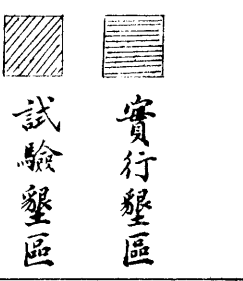 實行墾區
試驗墾區